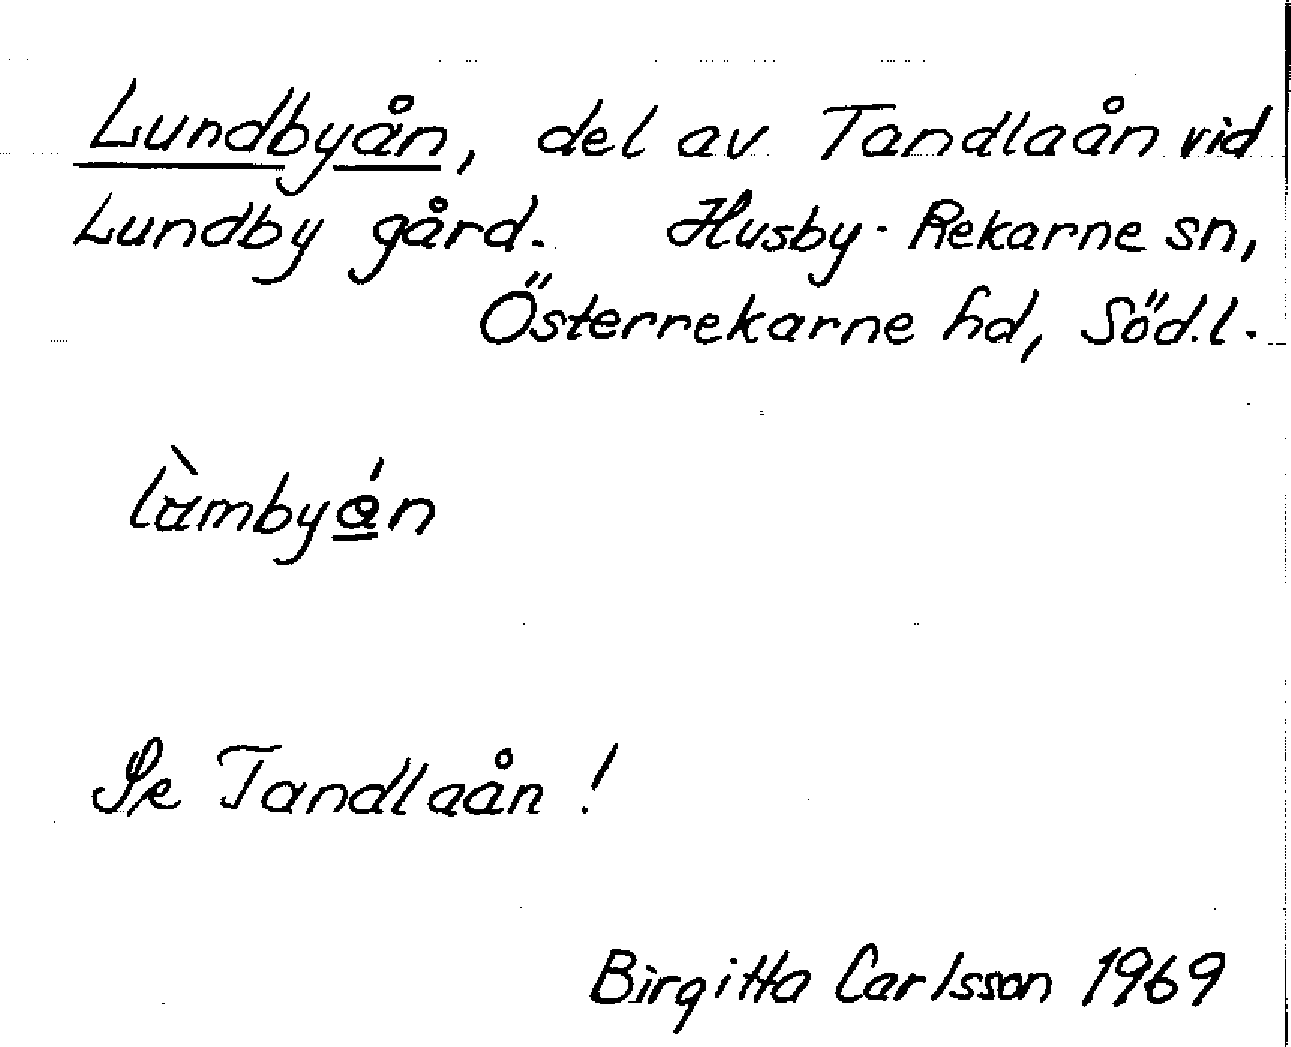 Lundbyån, del av Tandlaån vid
Lundby gård. Husby-Rekarne sn,
Österrekarne hd, Söd.l.
Se Tandlaån!
Birgitta Carlsson 1969